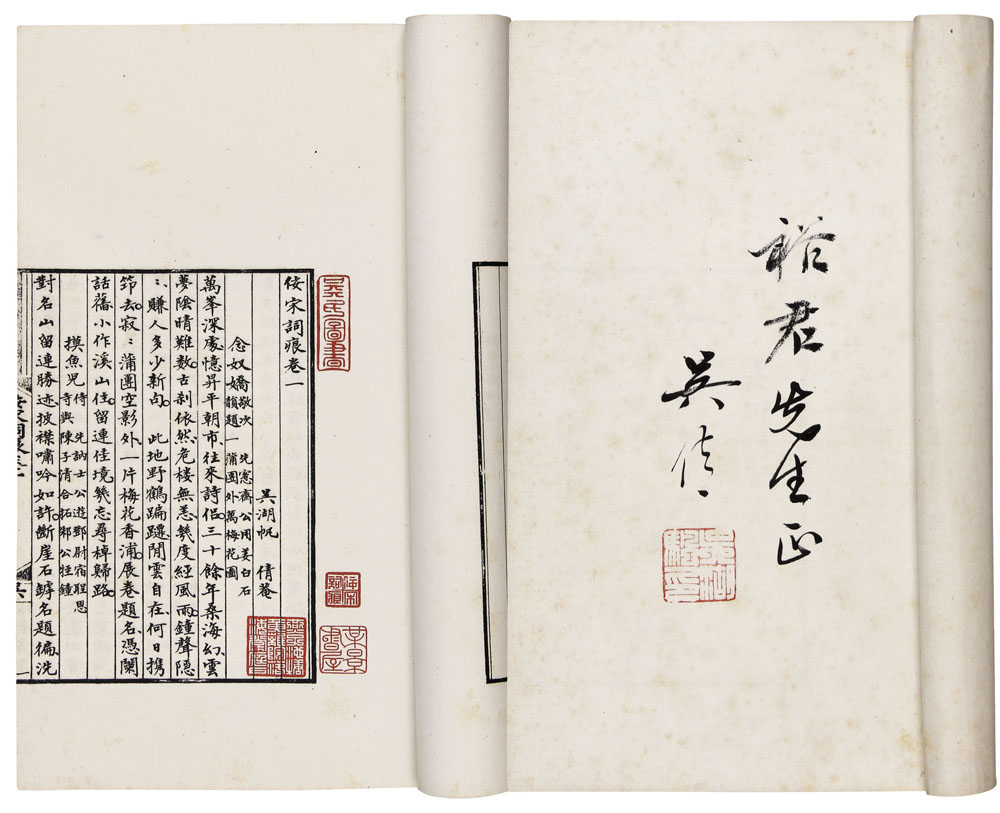 裕君先生正
吳倩
吳湖颿印
吳氏圖書
佞宋詞痕
某景書屋
佞宋詞痕卷一
吳湖帆 倩菴
念奴嬌 敬次 先愙齋公用姜白石
韻題一蒲團外萬梅花圖
萬峯深處憶昇平朝市往來詩侶三十餘年桑海幻雲
夢陰晴難數古刹依然危樓無恙幾度經風雨鐘聲隱
〻賺人多少新句 此地野鶴蹁躚閒雲自在何日携
笻去寂〻蒲團空影外一片梅花香浦展卷題名憑闌
話舊小作溪山住留連佳境幾忘尋棹歸路
摸魚兒 侍 先訥士公遊鄧尉宿聖恩
寺與陳子清合拓邾公牼鐘
對名山留連勝迹披襟嘯吟如許斷崖石罅名題徧洗